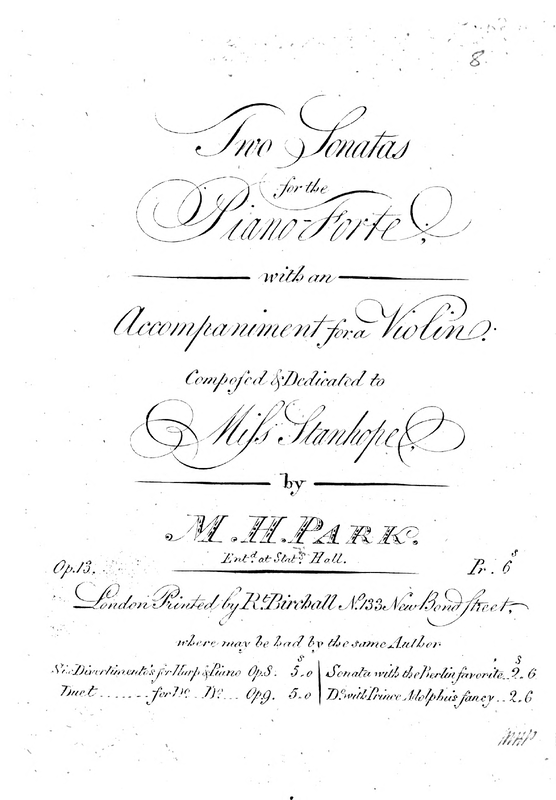 8
Two Sonatas
for the
Piano-Forte,
with an
Accompaniment for a Violin.
Compoſed & Dedicated to
Miſs Stanhope,
by
M.H.PARK.
Entd. at Stats. Hall.
Op.13. Pr. 6s
London Printed by Rt. Birchall No. 133 New Bond Street,
where may be had by the same Author
Six Divertimento's for Harp & Piano Op.8. 5s-0 | Sonata with the Berlin favorite.. 2s-6
Duet ....... for Do Do ... Op.9. 5-0 | Do. with Prince Adolphus fancy .. 2-6
MHP